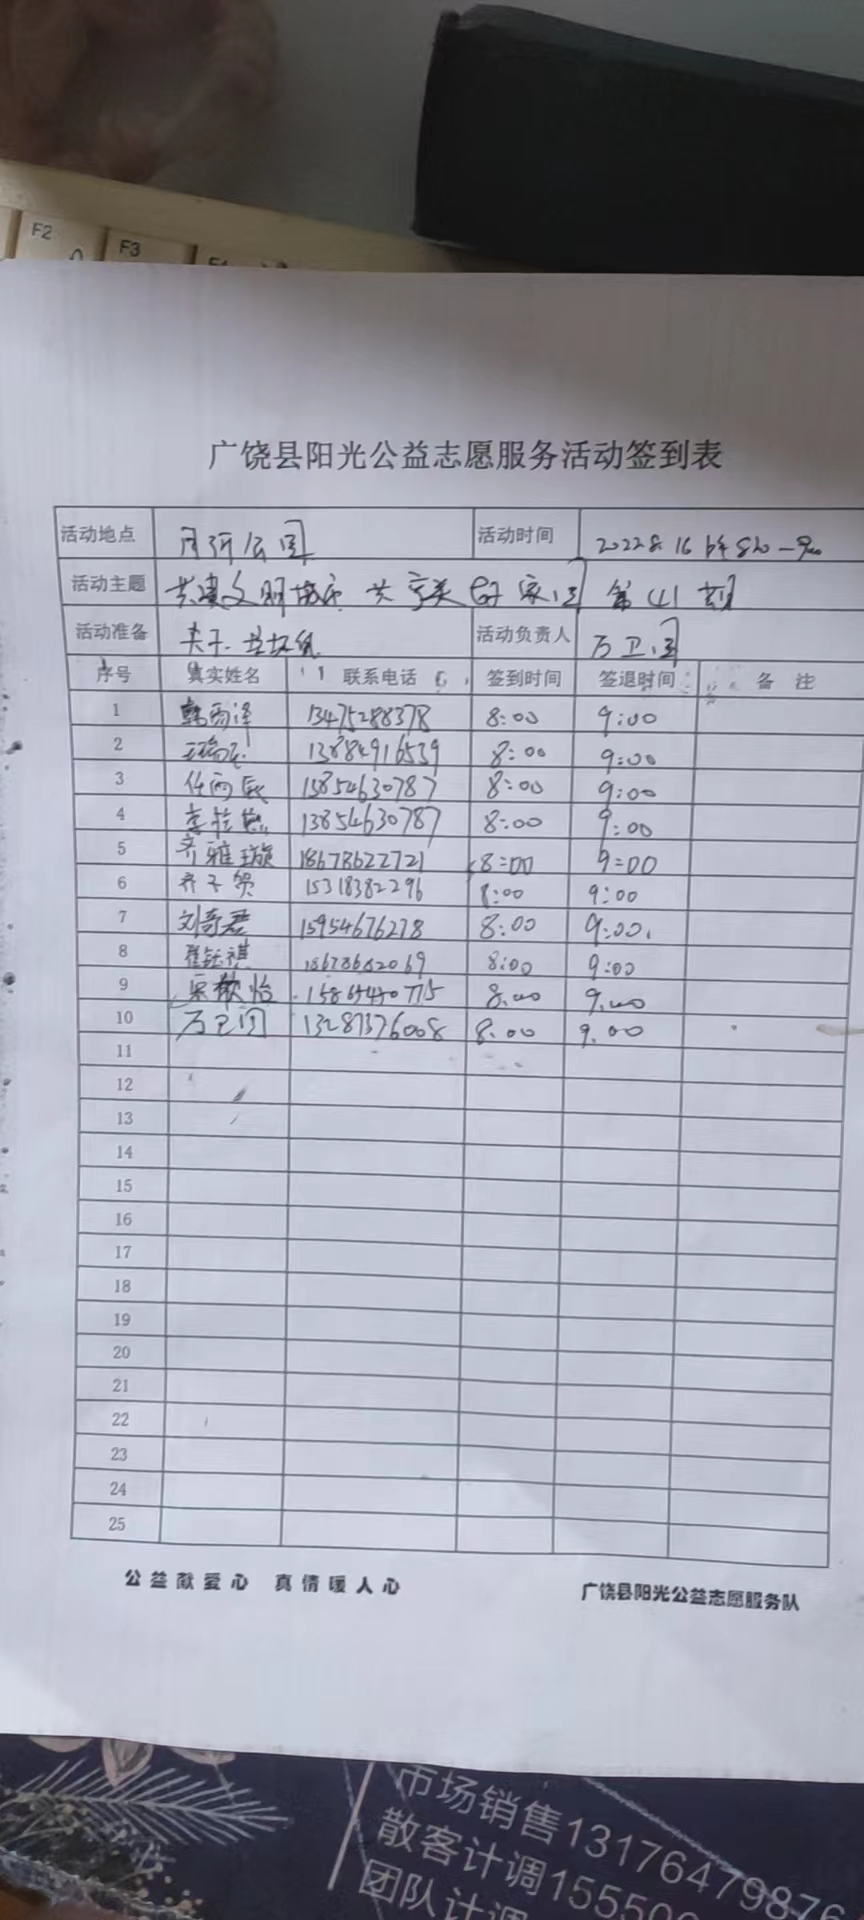 F2
F3
广饶县阳光公益志愿服务活动签到表
活动地点 月河公园 活动时间 2022.8.16
活动主题 共建文明城市 共享美好家园 第41期
活动准备 夹子 垃圾袋 活动负责人 万卫
序号 真实姓名 联系电话 签到时间 签退时间 备 注
1 韩雨泽 13475288378 8:00 9:00
2 13884916539 8:00 9:00
3 任雨辰 15854630787 8:00 9:00
4 13854630787 8:00 9:00
5 齐雅璇 18678622721 8:00 9:00
6 齐子贺 15318382296 8:00 9:00
7 刘奇君 15954676278 8:00 9:00
8 崔钰祺 18678682069 8:00 9:00
9 8.00 9.00
10 万卫 13287376008 8.00 9.00
11
12
13
14
15
16
17
18
19
20
21
22
23
24
25
公益献爱心 真情暖人心 广饶县阳光公益志愿服务队
市场销售13176479876
散客计调15550
团队计调